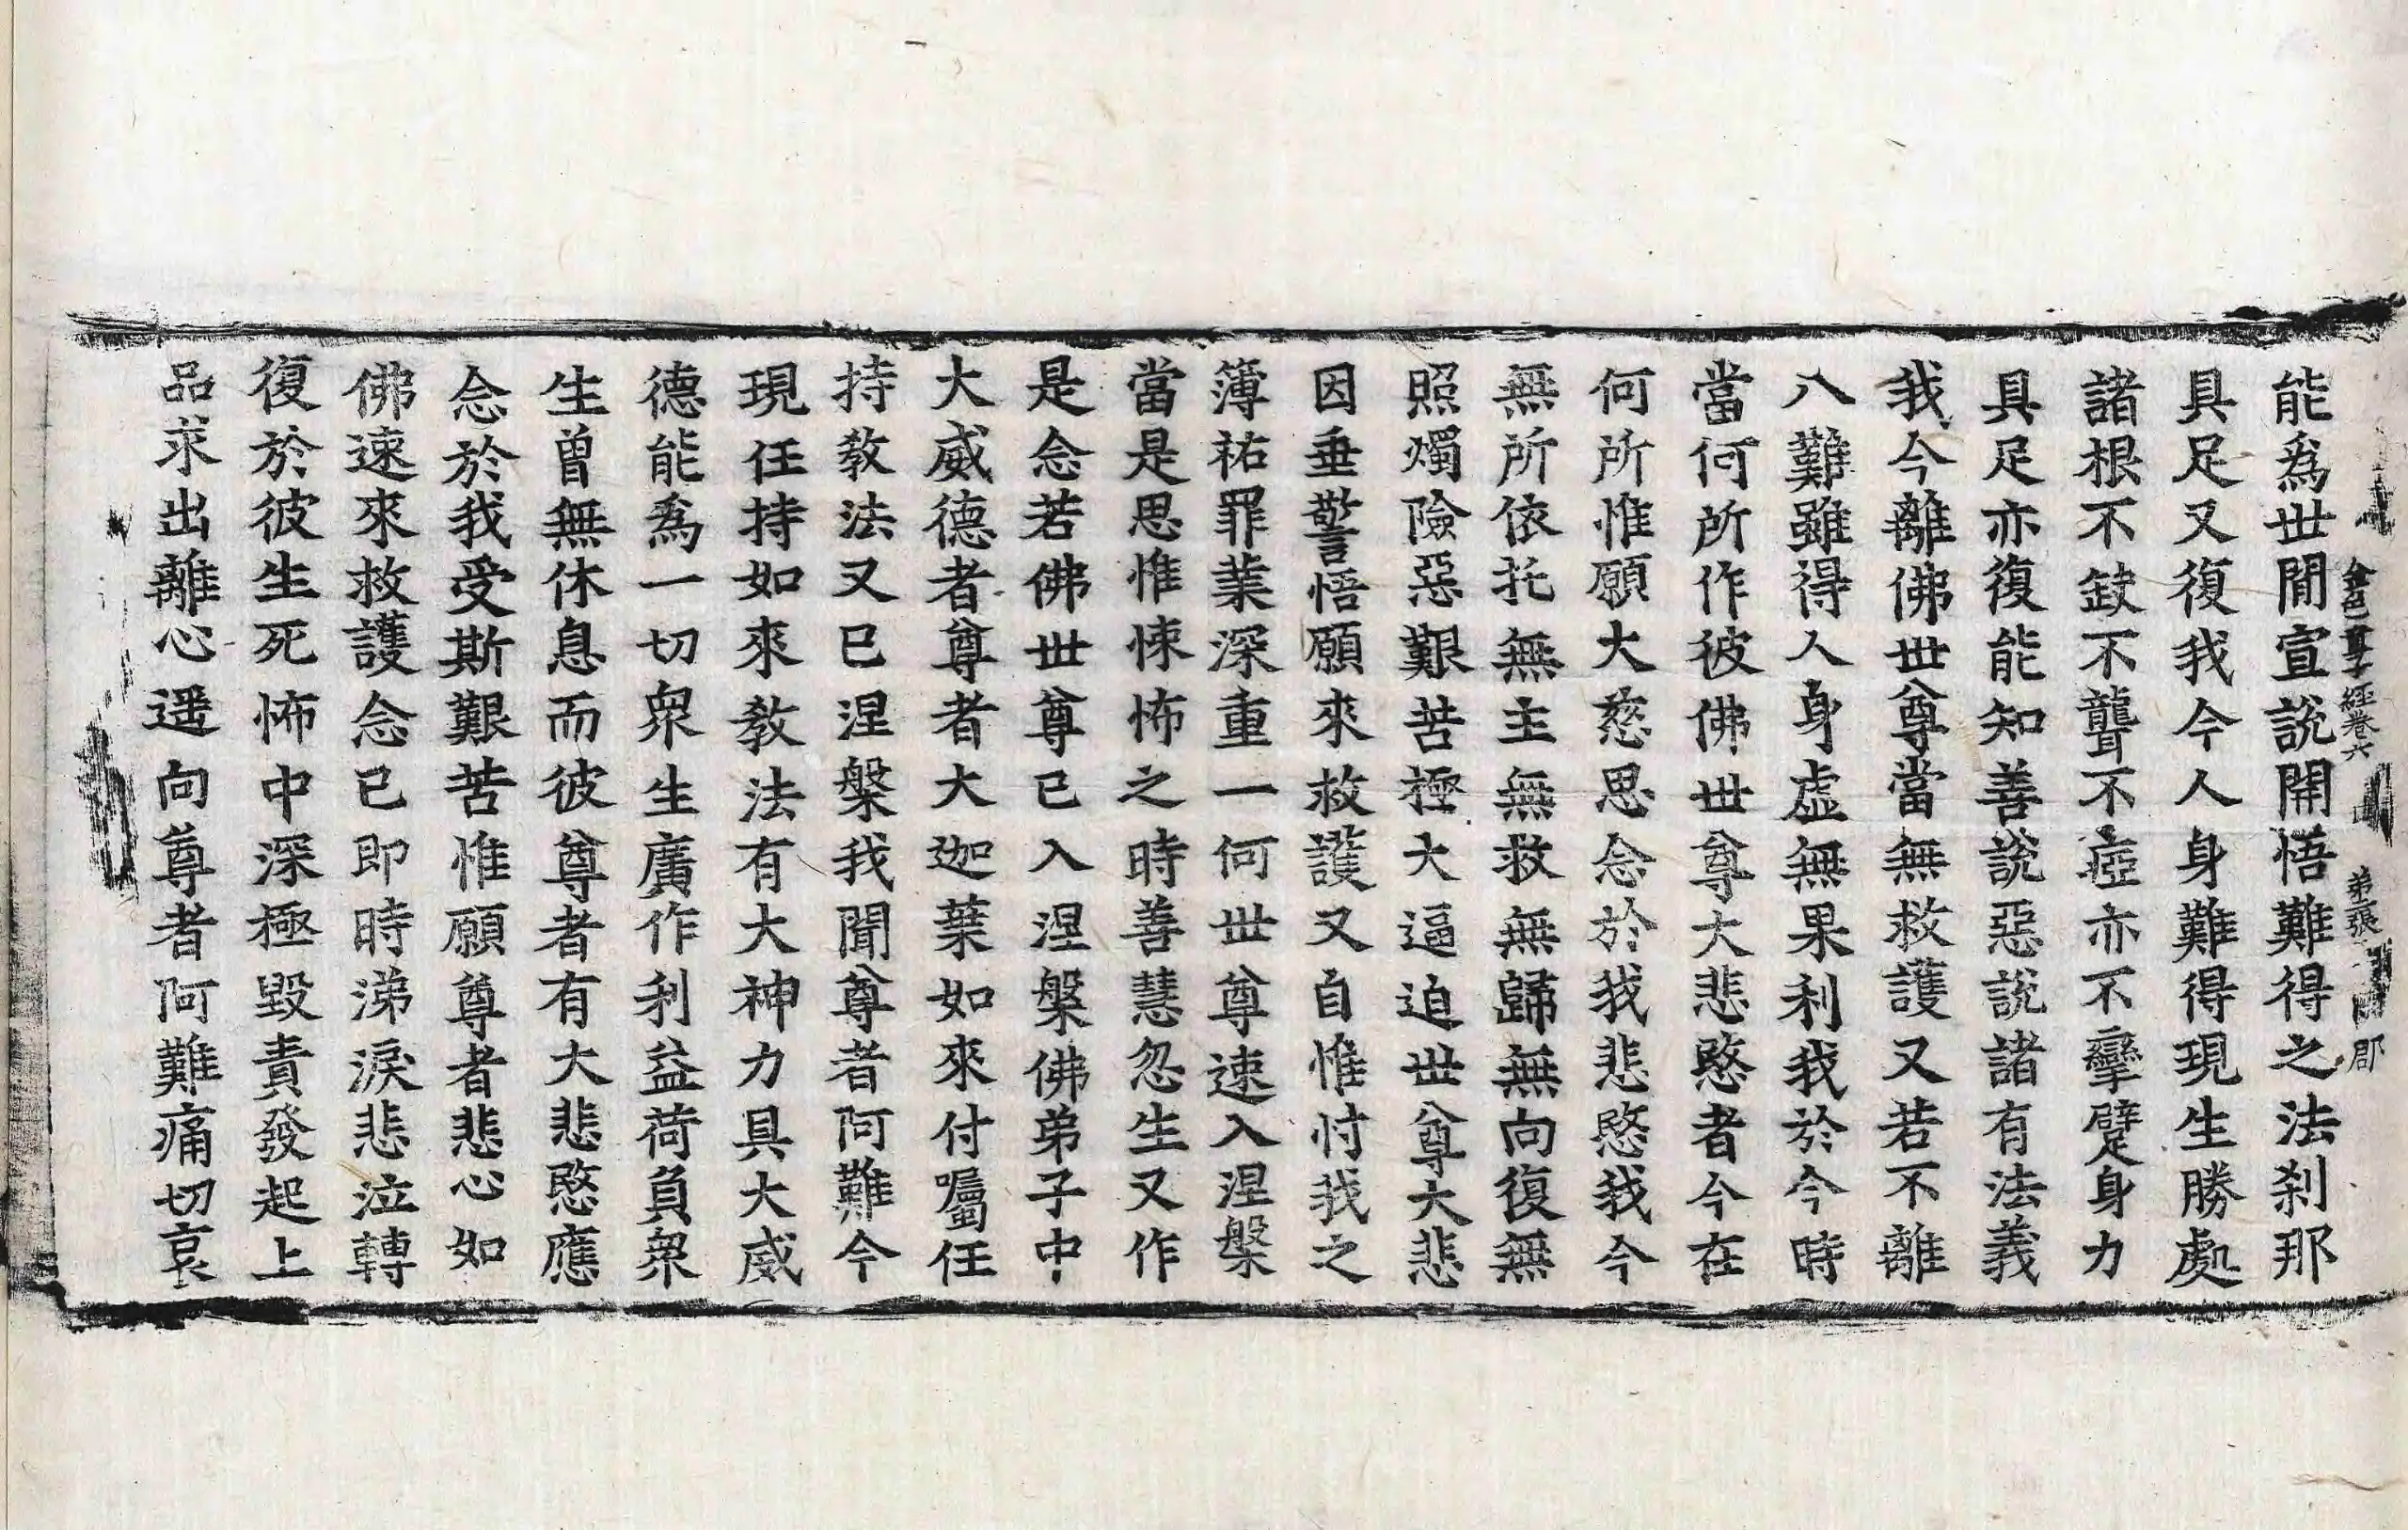 金色童子經卷六 第二張 郡
能爲世間宣說開悟難得之法刹那
具足又復我今人身難得現生勝處
諸根不缺不聾不瘂亦不攣躄身力
具足亦復能知善說惡說諸有法義
我今離佛世尊當無救護又若不離
八難雖得人身虛無果利我於今時
當何所作彼佛世尊大悲愍者今在
何所惟願大慈思念於我悲愍我今
無所依托無主無救無歸無向復無
照燭險惡艱苦極大逼迫世尊大悲
因垂警悟願來救護又自惟忖我之
簿祐罪業深重一何世尊速入涅槃
當是思惟悚怖之時善慧忽生又作
是念若佛世尊已入涅槃佛弟子中
大威德者尊者大迦葉如來付囑任
持教法又已涅槃我聞尊者阿難今
現任持如來教法有大神力具大威
德能爲一切衆生廣作利益荷負衆
生曾無休息而彼尊者有大悲愍應
念於我受斯艱苦惟願尊者悲心如
佛速來救護念已即時涕淚悲泣轉
復於彼生死怖中深極毀責發起上
品求出離心遥向尊者阿難痛切哀